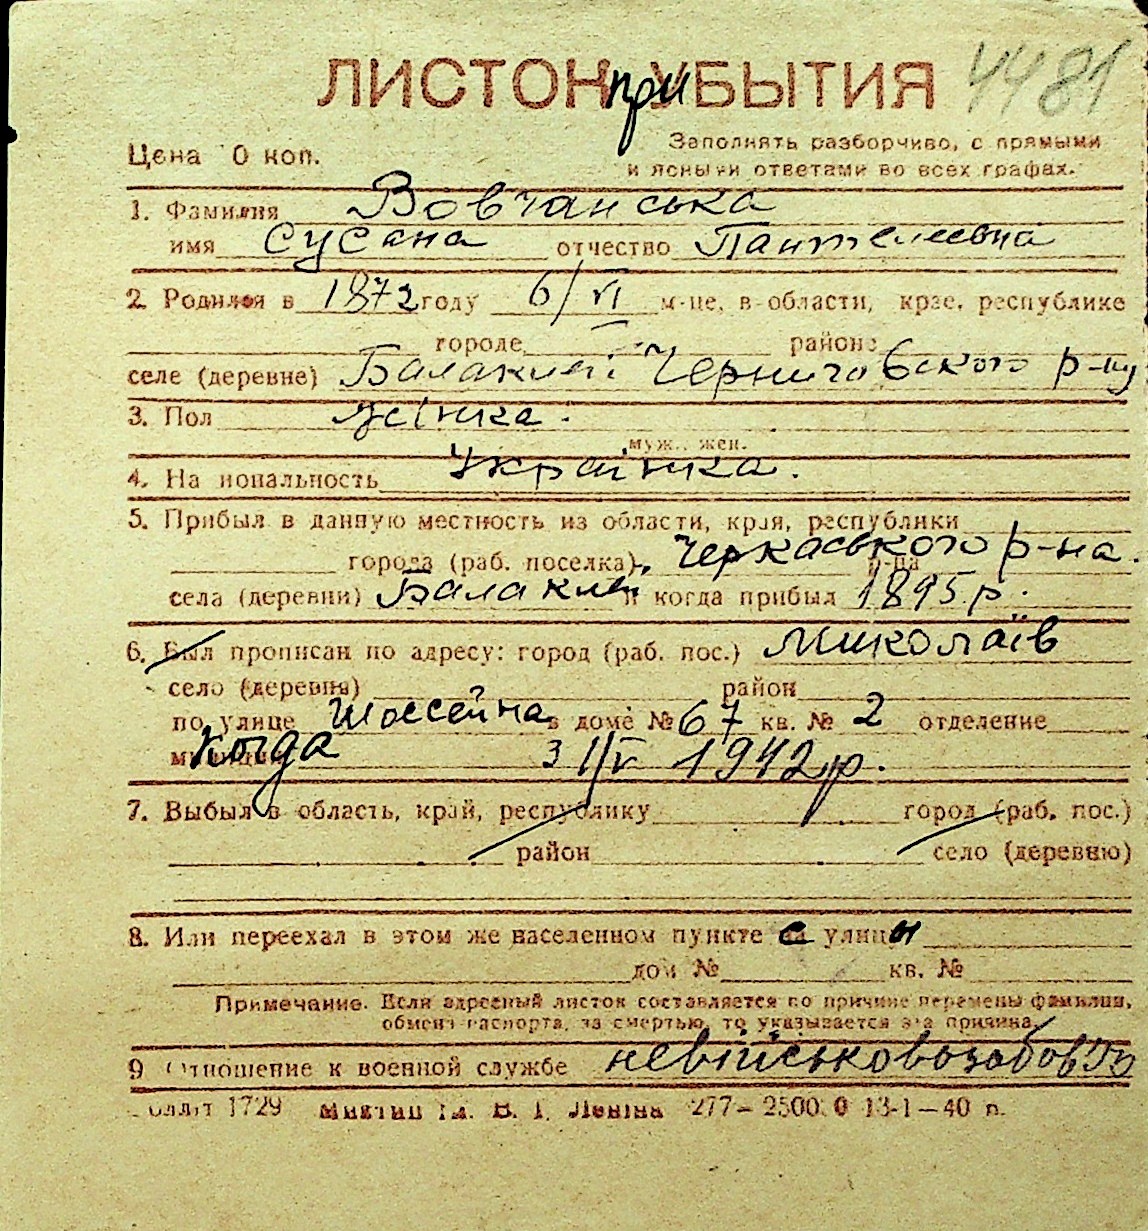 ЛИСТОК приУБЫТИЯ 4481
Цена 0 коп.
Заполнять разборчиво, с прямыми
и ясными ответами во всех графах.
1. Фамилия Вовчанська
имя Сусана отчество Пантелеевна
2. Родился в 1872 году 6/VI м-це, в области, крае, республике
городе районе
селе (деревне) Балаклей Черниговского р-ну
3. Пол жінка.
муж., жен.
4. Национальность Українка.
5. Прибыл в данную местность из области, края, республики
города (раб. поселка) Черкаського р-на.
р-на
села (деревни) Балаклеи и когда прибыл 1895 р.
6. Был прописан по адресу: город (раб. пос.) Миколаїв
село (деревня) район
по улице Шоссейна в доме № 67 кв. № 2 отделение
милиции Когда 3 1942 р.
7. Выбыл в область, край, республику город (раб. пос.)
район село (деревню)
8. Или переехал в этом же населенном пункте с улицы
дом № кв. №
Примечание. Если адресный листок составляется по причине перемены фамилии,
обмена паспорта, за смертью, то указывается эта причина.
9 Отношение к военной службе невійськовозобов'яз
1729 ім. В. І. Леніна 277— 2500 0 13-1—40 п.